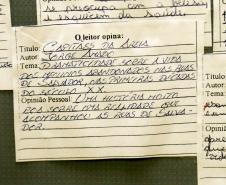 se preocupa com a beleza
e esquecem da saúde.
O leitor opina:
Título: CAPITÃES DA AREIA
Autor: JORGE AMADO
Tema: DRAMATICIDADE SOBRE A VIDA
DOS MENINOS ABANDONADOS NAS RUAS
DE SALVADOR, NAS PRIMEIRAS DÉCADAS
DO SÉCULO XX.
Opinião Pessoal: UMA HISTÓRIA MUITO
RICA SOBRE UMA REALIDADE QUE
ACOMPANHOU AS RUAS DE SALVA-
DOR.
Opinião